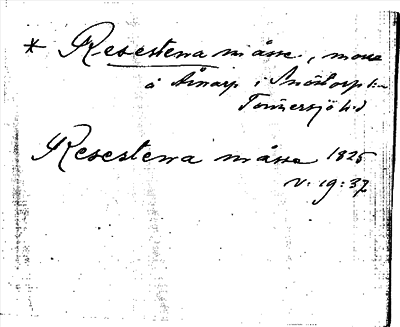 * Resestena måsse, mosse
å Årnarp i Snöstorp sn
Tönnersjö hd
Resestena måsse 1825
v. 19:37